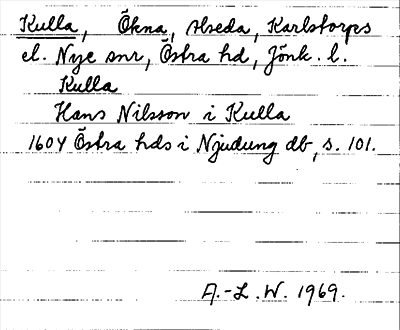 Kulla, Ökna, Alseda, Karlstorps
el. Nye snr, Östra hd, Jönk. l.
Kulla
Hans Nilsson i Kulla
1604 Östra hds i Njudung db, s. 101.
A.-L.W. 1969.